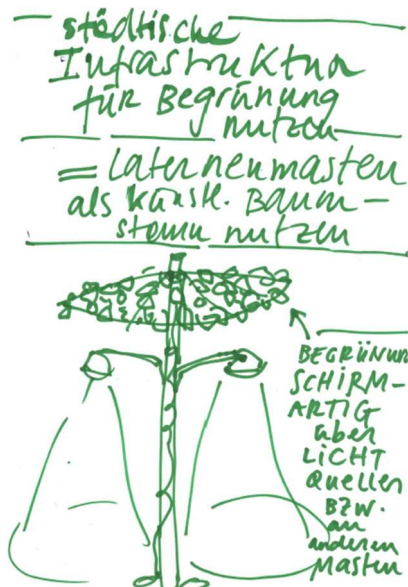 städtische
Infrastruktur
für Begrünung
nutzen
= Laternenmasten
als künstl. Baum-
stamm nutzen
BEGRÜNUNG
SCHIRM-
ARTIG
über
LICHT
Quellen
BZW.
an
anderen
MASTEN